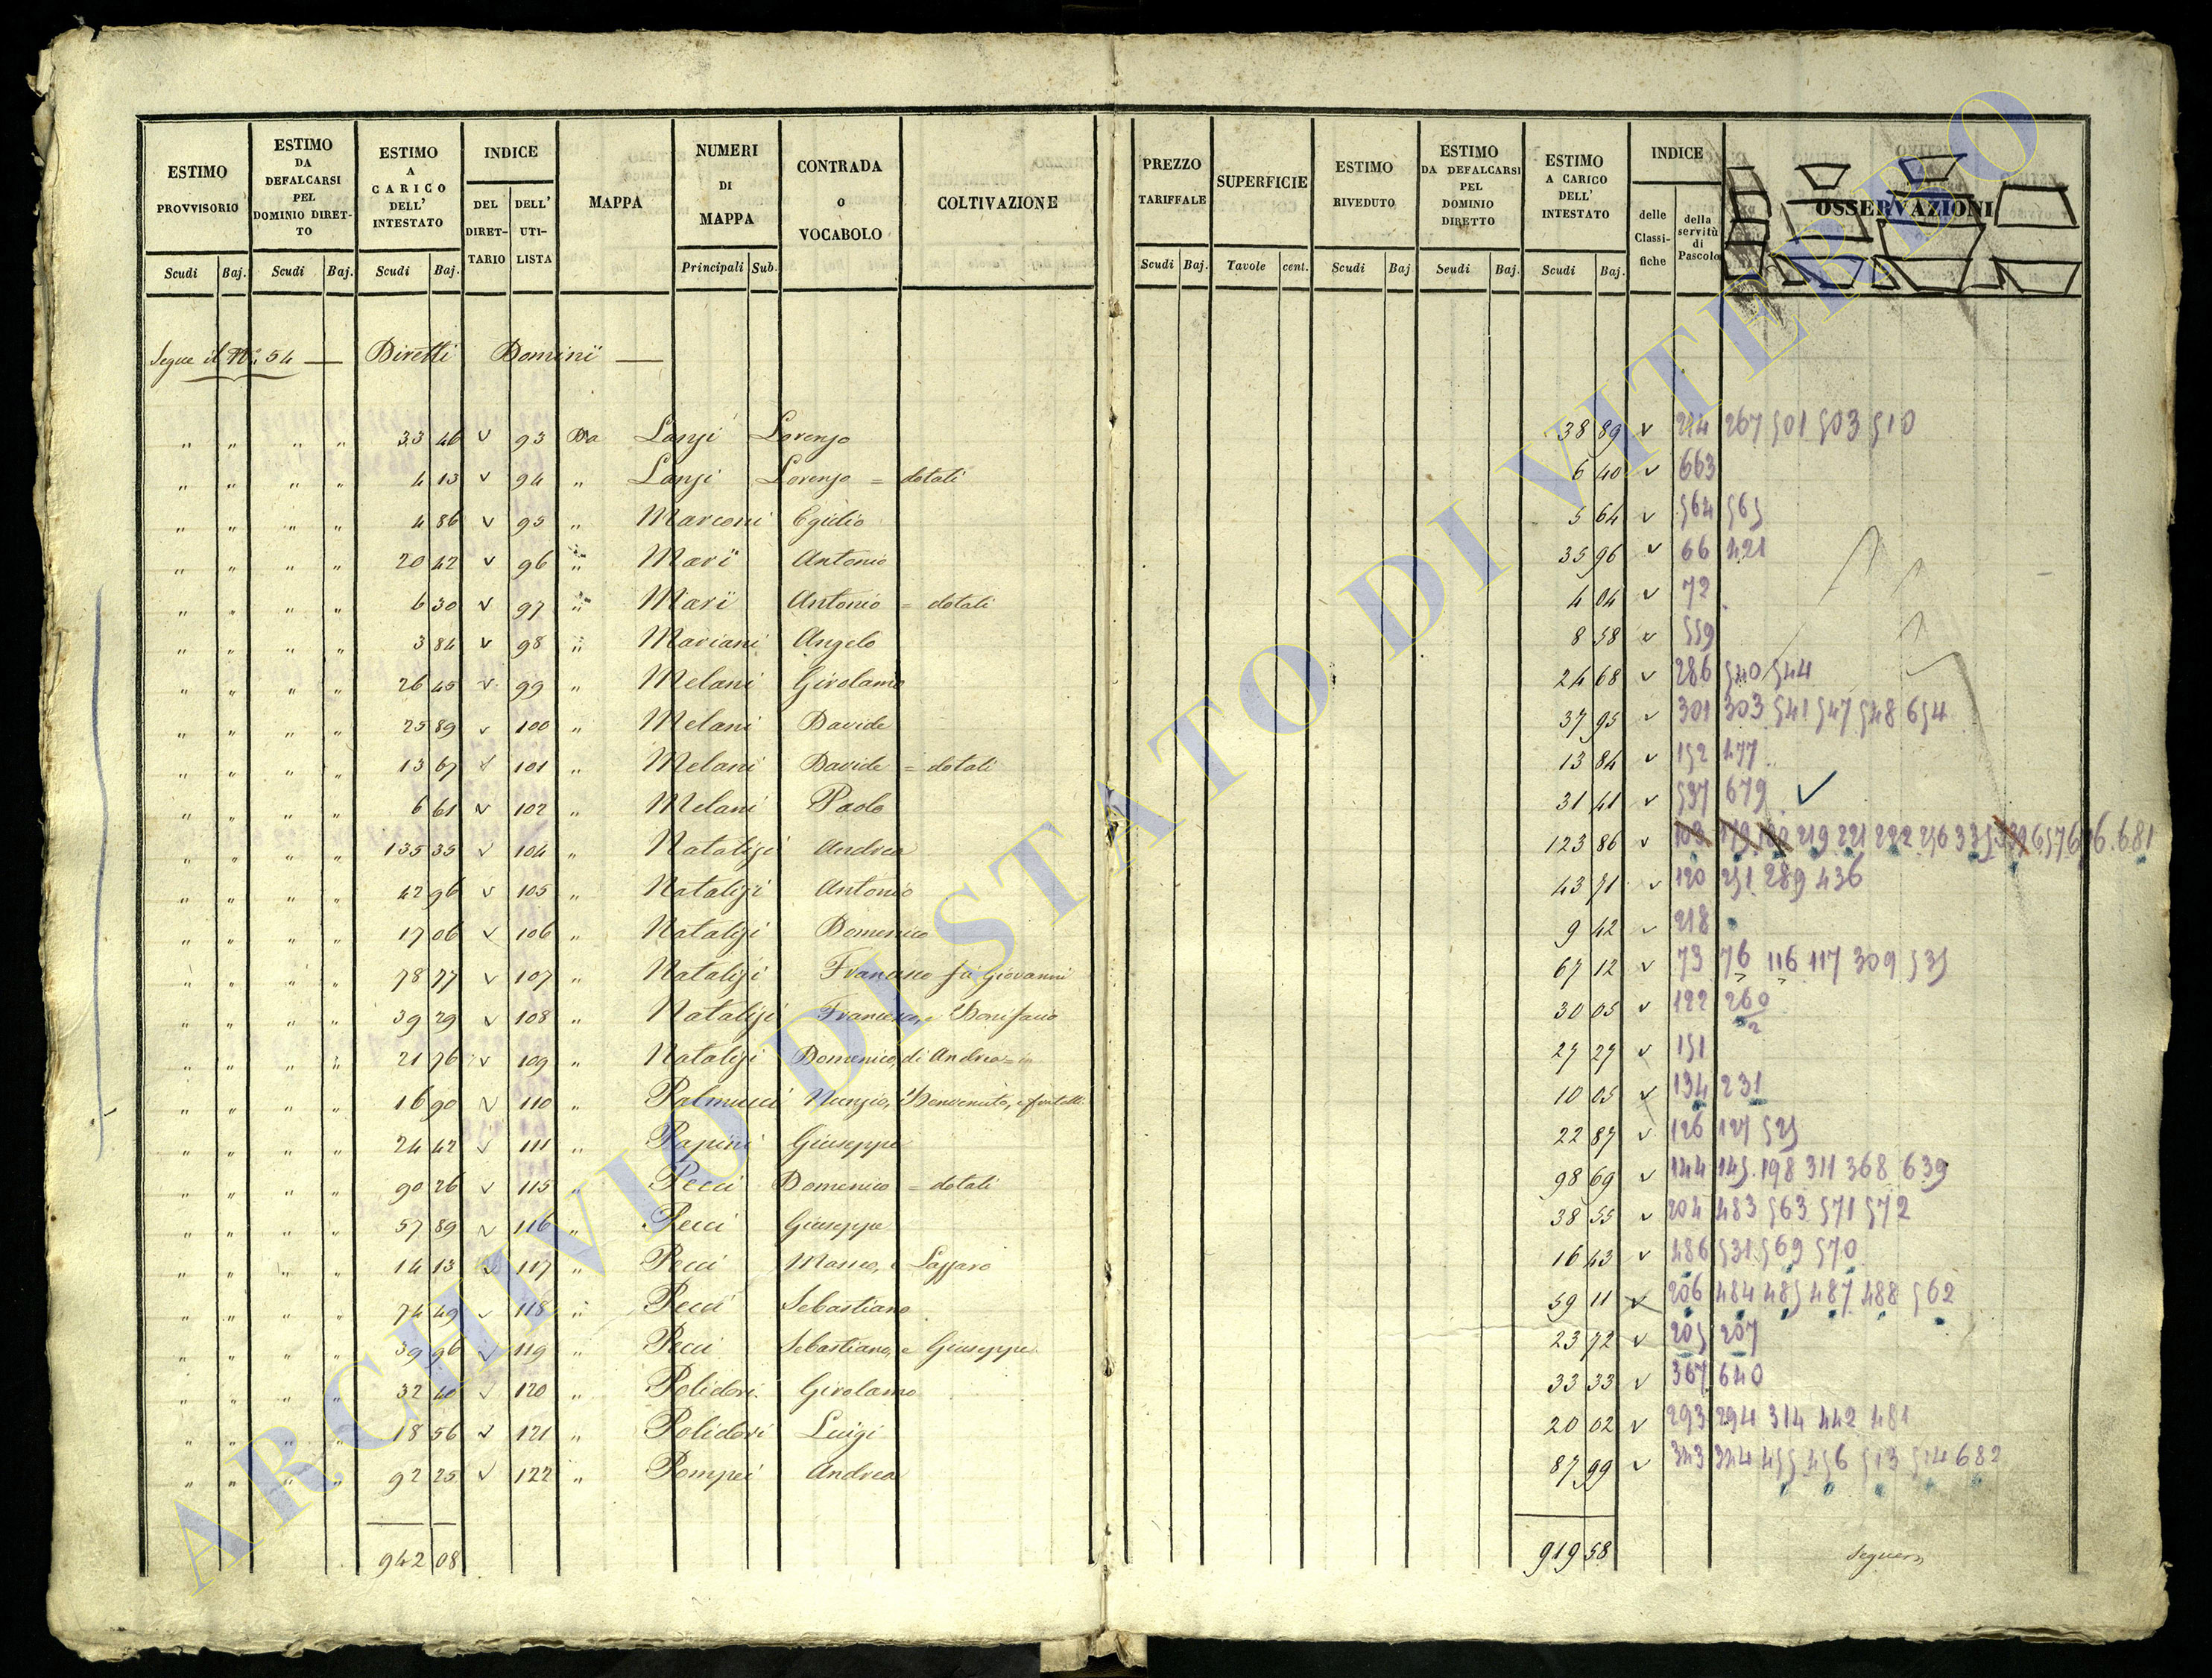 ESTIMO PROVVISORIO
ESTIMO DA DEFALCARSI PEL DOMINIO DIRET-TO
ESTIMO A CARICO DELL' INTESTATO
INDICE
DEL DIRET-TARIO
DELL' UTI-LISTA
MAPPA
NUMERI DI MAPPA
CONTRADA o VOCABOLO
COLTIVAZIONE
PREZZO TARIFFALE
SUPERFICIE
ESTIMO RIVEDUTO
ESTIMO DA DEFALCARSI PEL DOMINIO DIRETTO
ESTIMO A CARICO DELL' INTESTATO
INDICE
delle Classi-fiche
della servitù di Pascolo
OSSERVAZIONI
Scudi Baj. Scudi Baj. Scudi Baj. Principali Sub. Scudi Baj. Tavole cent. Scudi Baj Scudi Baj. Scudi Baj.
Segue il N.° 54 — Diretti Dominii —
" " " " 33 46 v 93 Da Lanzi Lorenzo 38 89 v 214 267 501 503 510
" " " " 4 13 v 94 " Lanzi Lorenzo = dotali 6 40 v 663
" " " " 4 86 v 95 " Marconi Egidio 5 64 v 564 565
" " " " 20 42 v 96 " Marï Antonio 35 96 v 66 421
" " " " 6 30 v 97 " Marï Antonio = dotali 4 04 v 72
" " " " 3 84 v 98 " Mariani Angelo 8 58 v 559
" " " " 26 45 v 99 " Melani Girolamo 24 68 v 286 540 544
" " " " 25 89 v 100 " Melani Davide 37 95 v 301 303 541 547 548 654
" " " " 13 67 v 101 " Melani Davide = dotali 13 84 v 152 477
" " " " 6 61 v 102 " Melani Paolo 31 41 v 537 679 ✓
" " " " 135 35 v 104 " Natalizi Andrea 123 86 v 103 179 180 219 221 222 256 335 681
" " " " 42 96 v 105 " Natalizi Antonio 43 71 v 120 251 289 436
" " " " 17 06 v 106 " Natalizi Domenico 9 42 v 218
" " " " 78 77 v 107 " Natalizi Francesco fù Giovanni 67 12 v 73 76 116 117 309 535
" " " " 39 29 v 108 " Natalizi Francesco, e Bonifacio 30 05 v 122 260/2
" " " " 21 76 v 109 " Natalizi Domenico, di Andrea 27 27 v 151
" " " " 16 90 v 110 " Palmucci Nunzio, Benvenuto, e fratelli 10 05 v 134 231
" " " " 24 42 v 111 " Papini Giuseppe 22 87 v 126 127 525
" " " " 90 26 v 115 " Pecci Domenico = dotali 98 69 v 144 145 198 311 368 639
" " " " 57 89 v 116 " Pecci Giuseppe 38 55 v 204 483 563 571 572
" " " " 14 13 v 117 " Pecci Matteo, e Lazzaro 16 43 v 486 531 569 570
" " " " 74 49 v 118 " Pecci Sebastiano 59 11 v 206 484 485 487 488 562
" " " " 39 96 v 119 " Pecci Sebastiano, e Giuseppe 23 72 v 205 207
" " " " 32 40 v 120 " Polidori Girolamo 33 33 v 367 640
" " " " 18 56 v 121 " Polidori Luigi 20 02 v 293 294 314 442 481
" " " " 92 25 v 122 " Pompei Andrea 87 99 v 323 324 455 456 513 514 682
942 08 919 58
ARCHIVIO DI STATO DI VITERBO